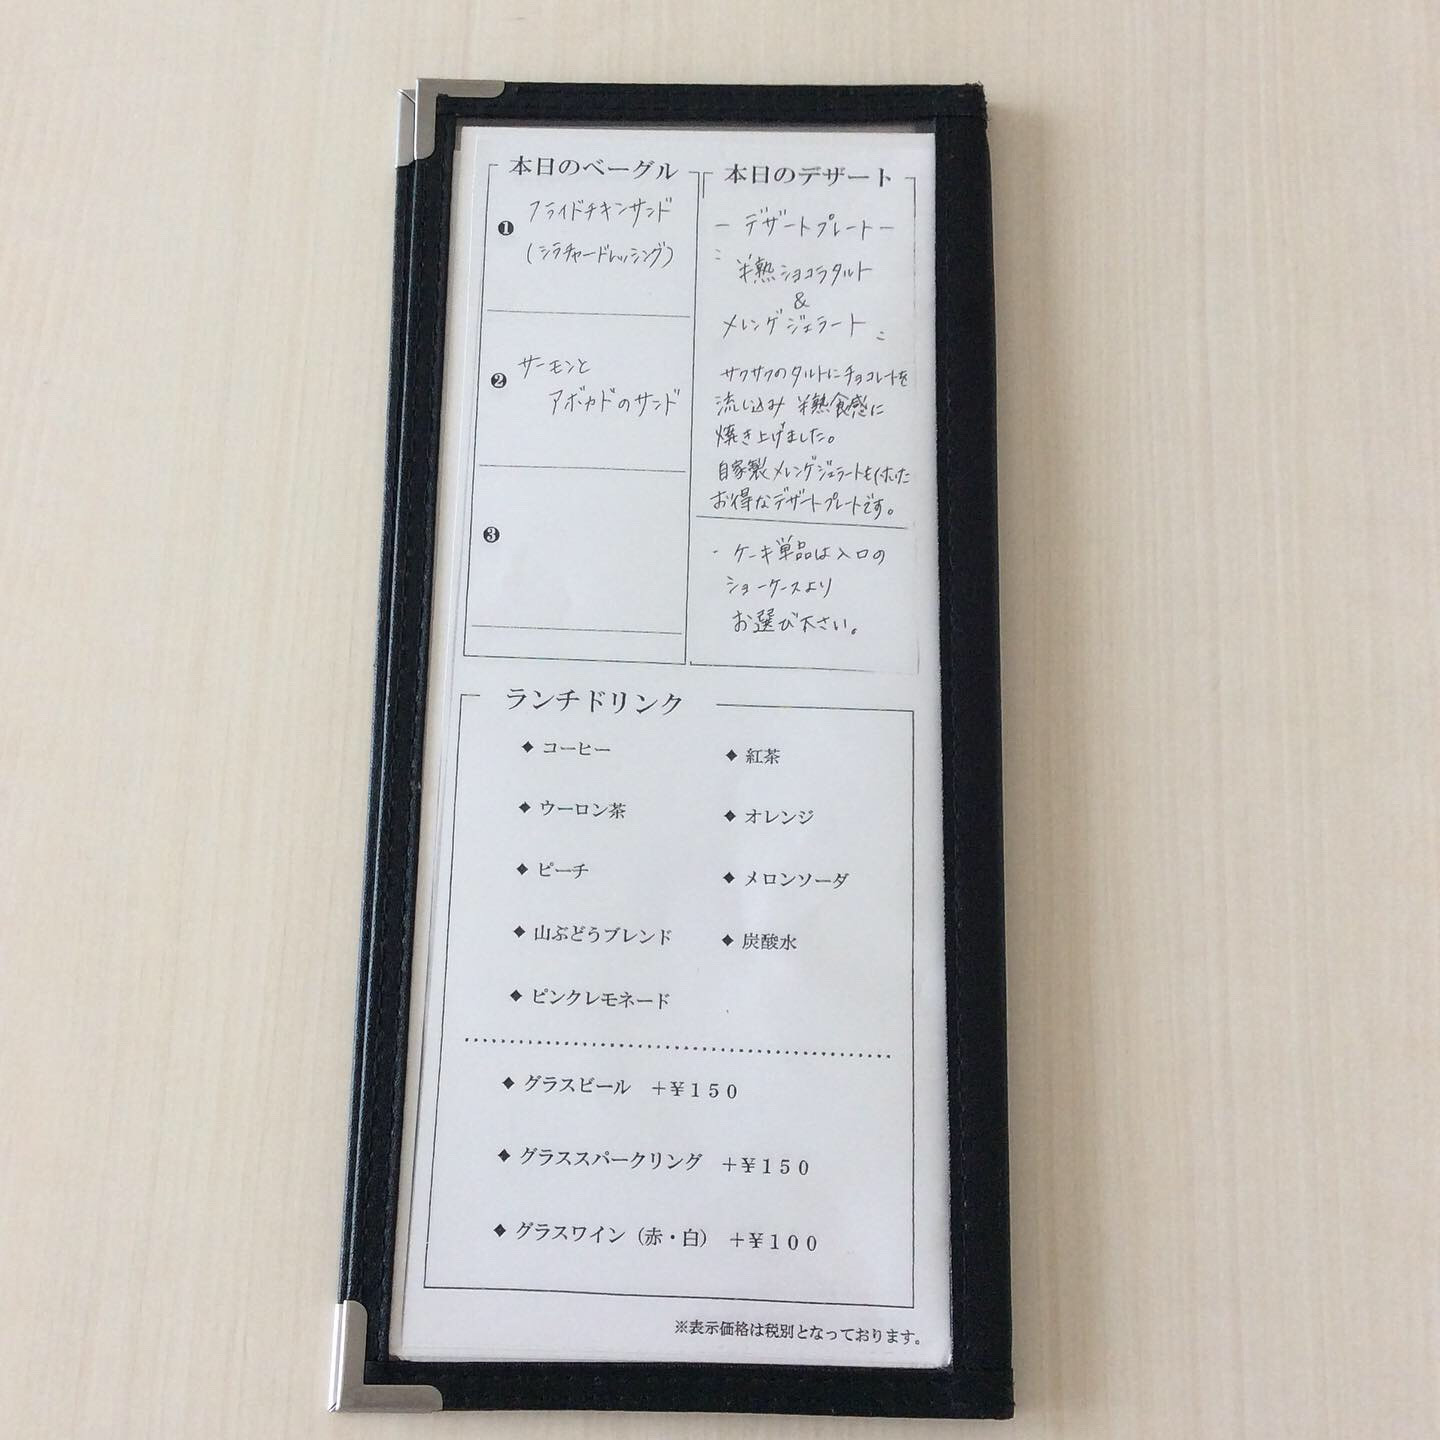 本日のベーグル
❶ フライドチキンサンド
(シラチャードレッシング)
❷ サーモンと
アボカドのサンド
❸
本日のデザート
ー デザートプレートー
半熟ショコラタルト
&
メレンゲジェラート
サクサクのタルトにチョコレートを
流し込み 半熟食感に
焼き上げました。
自家製メレンゲジェラートも付いた
お得なデザートプレートです。
・ケーキ単品は入口の
ショーケースより
お選び下さい。
ランチドリンク
◆ コーヒー
◆ 紅茶
◆ ウーロン茶
◆ オレンジ
◆ ピーチ
◆ メロンソーダ
◆ 山ぶどうブレンド
◆ 炭酸水
◆ ピンクレモネード
◆ グラスビール ＋￥１５０
◆ グラススパークリング ＋￥１５０
◆ グラスワイン（赤・白） ＋￥１００
※表示価格は税別となっております。